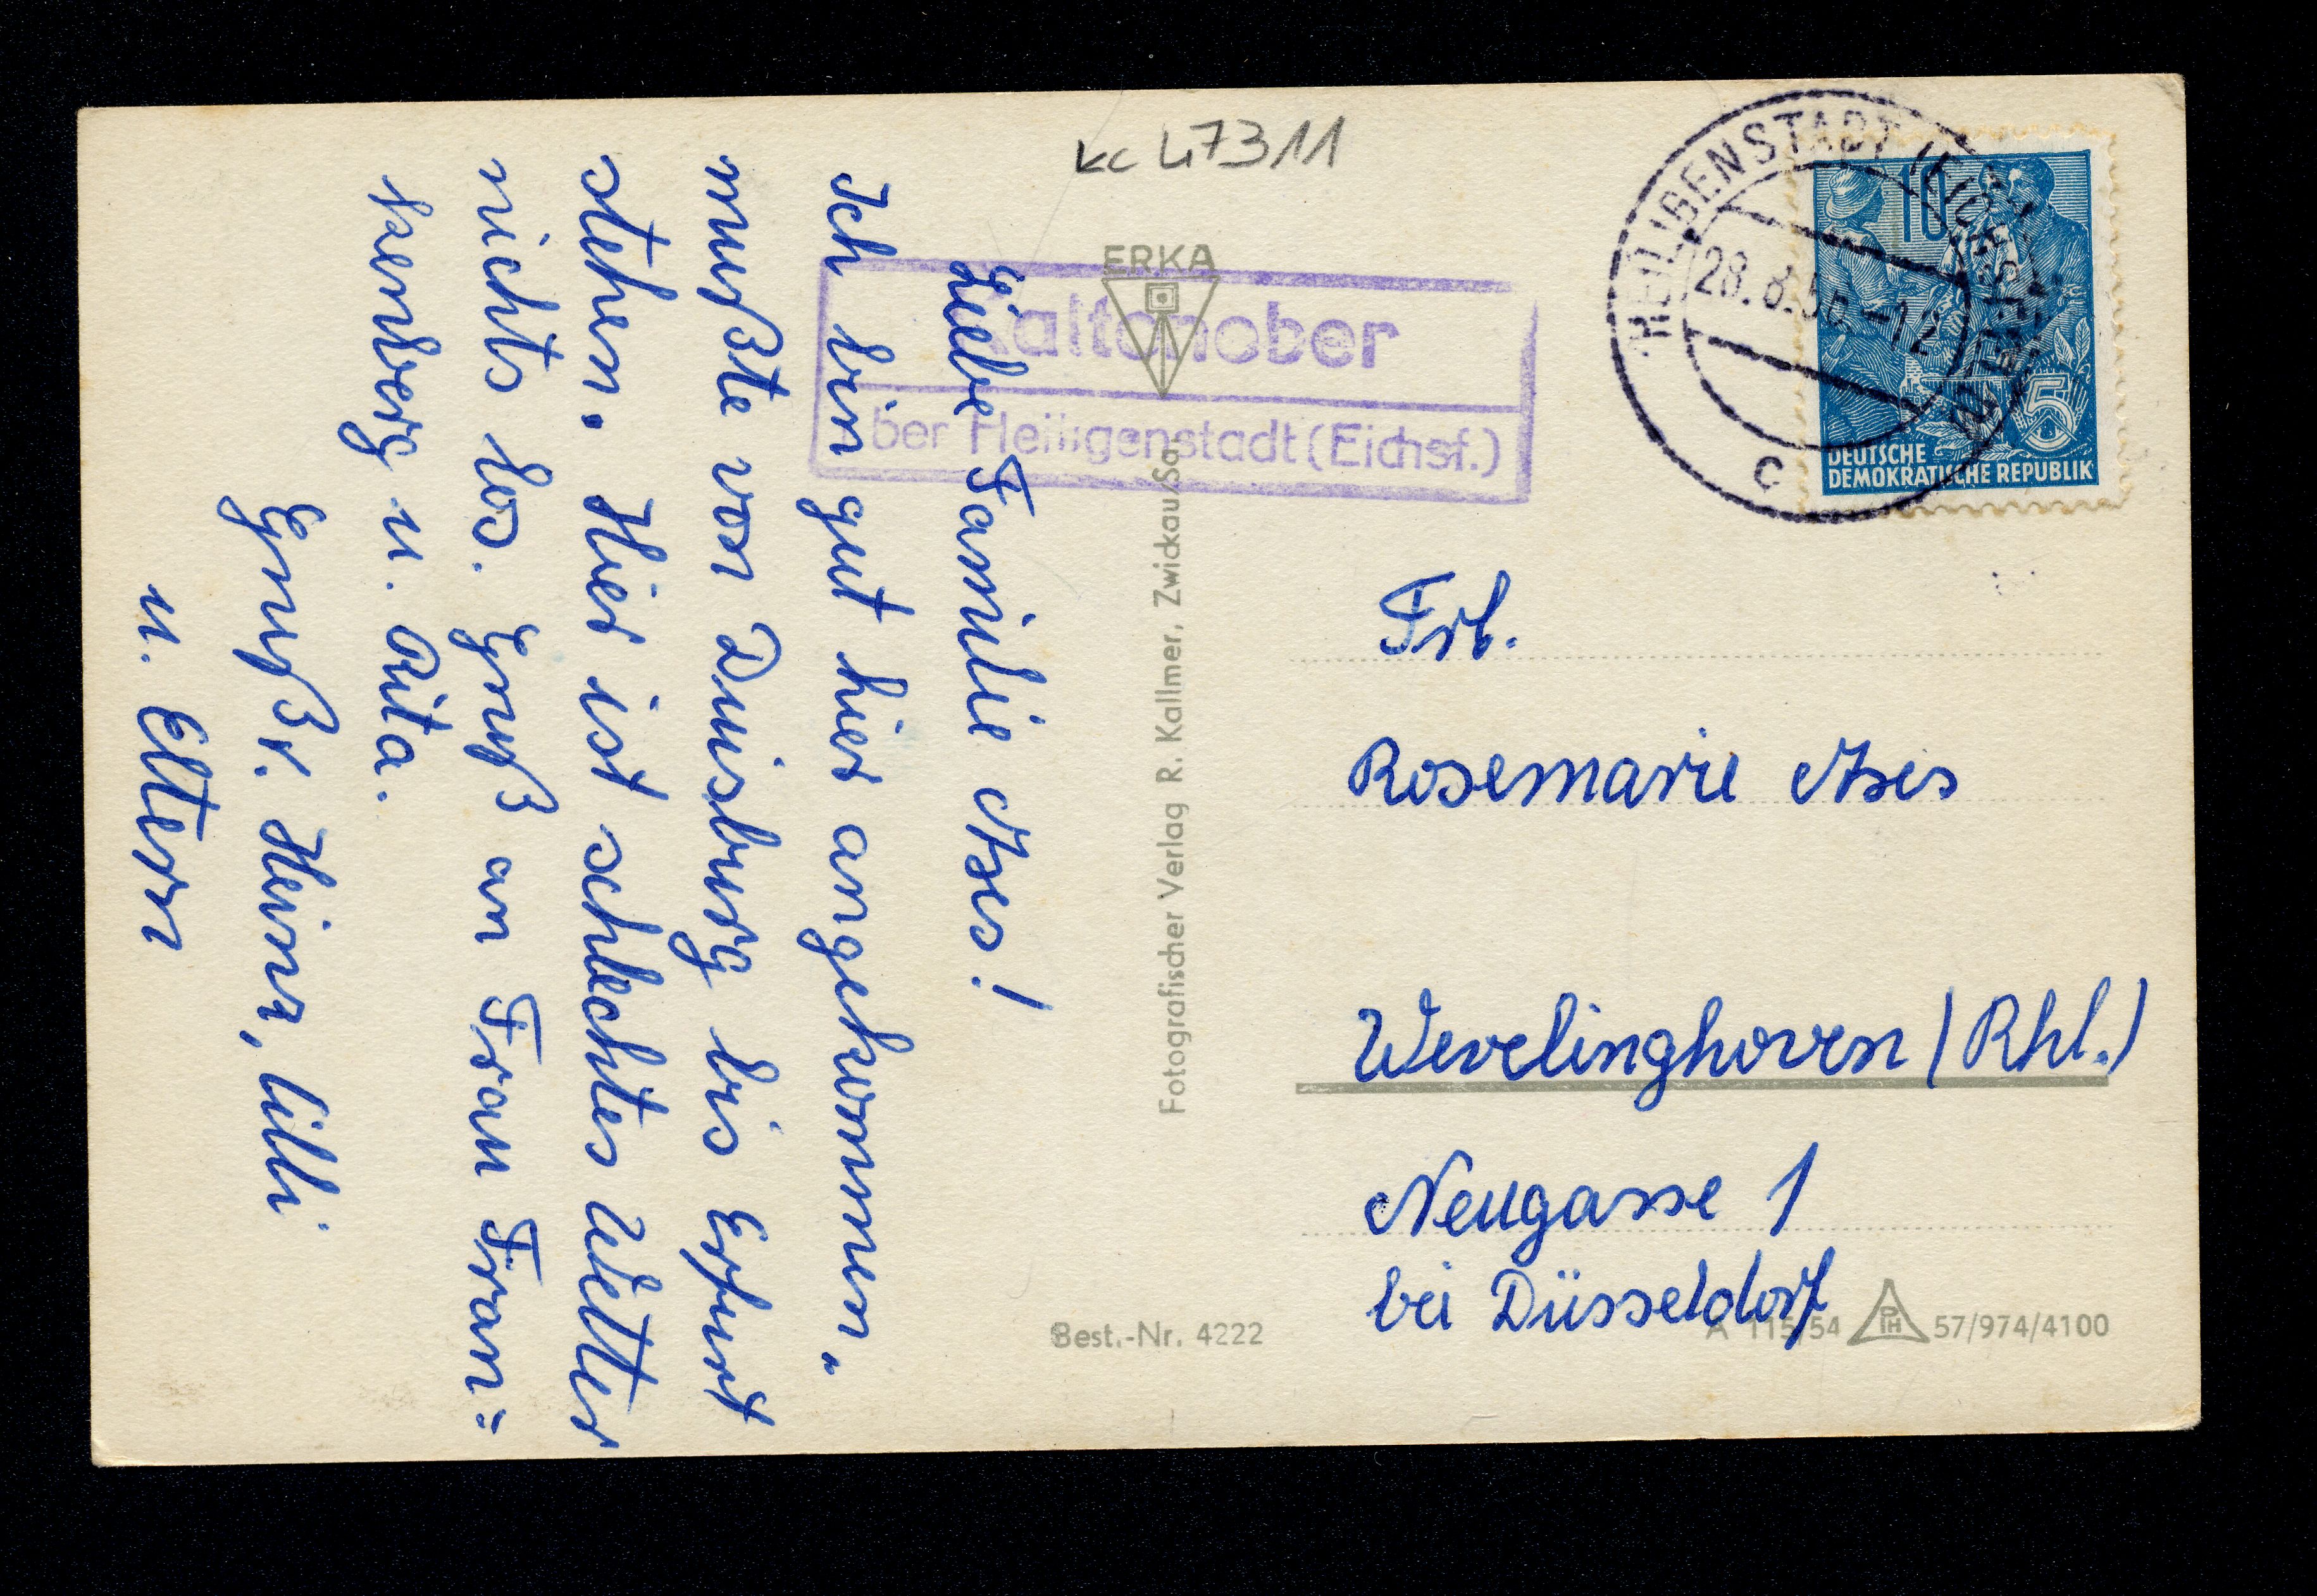 kc 47311
Liebe Familie Ases!
Ich bin gut hier angekommen.
mußte von Duisburg bis Erfurt
stehen. Hier ist schlechtes Wetter
nichts los. Gruß an Frau Fran=
kenberg u. Rita.
Gruß v. Heinz, Lilli
u. Eltern
ERKA
Fotografischer Verlag R. Kallmer, Zwickau/Sa.
Best.-Nr. 4222
Kaltenober
über Heiligenstadt (Eichsf.)
HEILIGENSTADT (EICHSFELD)
28.8.56-12
c
10
5
DEUTSCHE
DEMOKRATISCHE REPUBLIK
Frl.
Rosemarie Ases
Wevelinghoven (Rhl.)
Neugasse 1
bei Düsseldorf
A 115/54 PH 57/974/4100